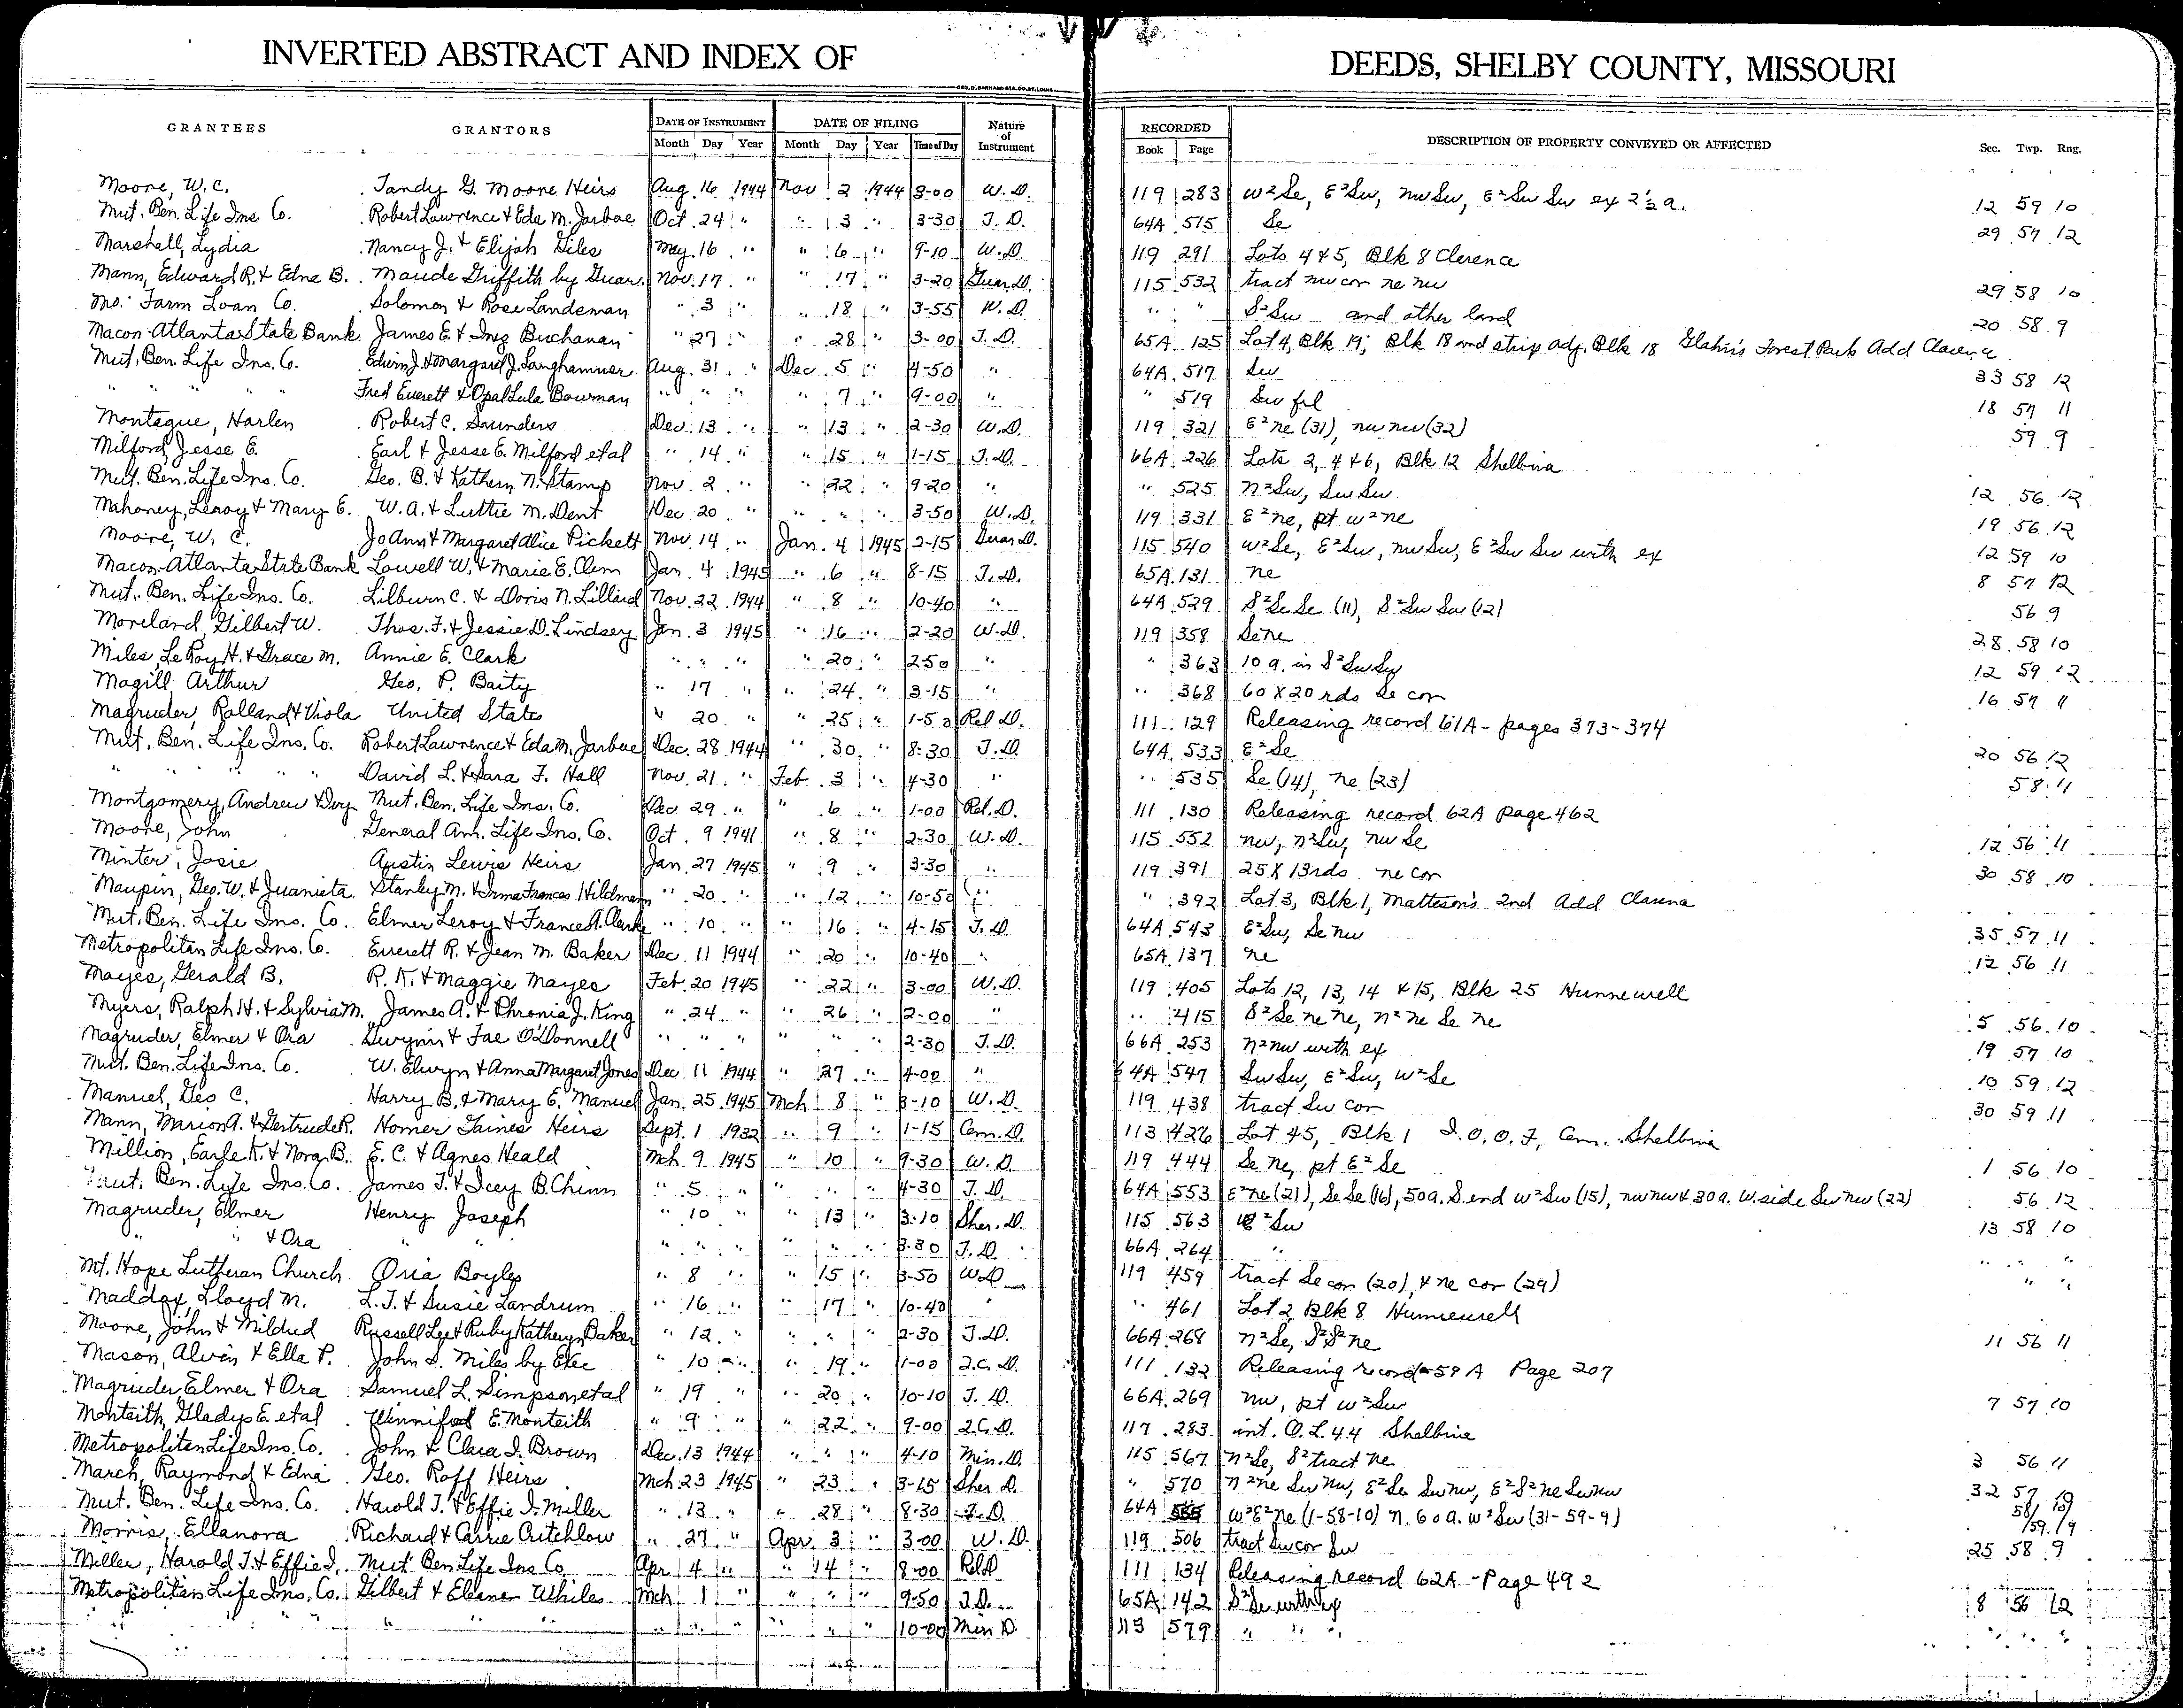 INVERTED ABSTRACT AND INDEX OF DEEDS, SHELBY COUNTY, MISSOURI
GEO. D. BARNARD STA. CO. ST. LOUIS
GRANTEES GRANTORS DATE OF INSTRUMENT DATE OF FILING Nature of Instrument RECORDED DESCRIPTION OF PROPERTY CONVEYED OR AFFECTED Sec. Twp. Rng.
Month Day Year Month Day Year Time of Day Book Page
Moore, W. C. Tandy G. Moore Heirs Aug. 16 1944 Nov 2 1944 3-00 W. D. 119 283 W² Se, E² Sw, nw Sw, E² Sw Sw ex 2½ a. 12 59 10
Mut. Ben. Life Ins Co. Robert Lawrence & Eda M. Jarboe Oct. 24 " " 3 " 3-30 T. D. 64A 515 Se 29 57 12
Marshall, Lydia Nancy J. & Elijah Giles May 16 " " 6 " 9-10 W. D. 119 291 Lots 4 & 5, Blk 8 Clarence
Mann, Edward R. & Edna B. Maude Griffith by Guar. Nov. 17 " " 17 " 3-20 Guar. D. 115 532 tract nw cor ne nw 29 58 10
Mo. Farm Loan Co. Solomon & Rose Landsman " 3 " " 18 " 3-55 W. D. " " S² Sw and other land 20 58 9
Macon-Atlanta State Bank James E. & Inez Buchanan " 27 " " 28 " 3-00 T. D. 65A 125 Lot 4, Blk 19; Blk 18 and strip adj. Blk 18 Glahn's Forest Park Add Clarence
Mut. Ben. Life Ins. Co. Edwin J. & Margaret J. Langhammer Aug. 31 " Dec. 5 " 4-50 " 64A 517 Sw 33 58 12
" " " Fred Everett & Opal Lula Bowman " " " " 7 " 9-00 " " 519 Sw frl 18 57 11
Montague, Harlen Robert C. Saunders Dec. 13 " " 13 " 2-30 W. D. 119 321 E² ne (31), nw nw (32) 59 9
Milford, Jesse E. Earl & Jesse E. Milford etal " 14 " " 15 " 1-15 T. D. 66A 226 Lots 2, 4 & 6, Blk 12 Shelbina
Mut. Ben. Life Ins. Co. Geo. B. & Kathern N. Stamp Nov. 2 " " 22 " 9-20 " " 525 N² Sw, Sw Sw 12 56 12
Mahoney, Leroy & Mary E. W. A. & Luttie M. Dent Dec 20 " " " " 3-50 W. D. 119 331 E² ne, pt W² ne 19 56 12
Moore, W. C. Jo Ann & Margaret Alice Pickett Nov. 14 " Jan. 4 1945 2-15 Guar D. 115 540 W² Se, E² Sw, nw Sw, E² Sw Sw with ex 12 59 10
Macon-Atlanta State Bank Lowell W. & Marie E. Clem Jan. 4 1945 " 6 " 8-15 T. D. 65A 131 ne 8 57 12
Mut. Ben. Life Ins. Co. Lilburn C. & Doris N. Lillard Nov. 22 1944 " 8 " 10-40 " 64A 529 S² Se Se (11), S² Sw Sw (12) 56 9
Moreland, Gilbert W. Thos. F. & Jessie D. Lindsey Jan. 3 1945 " 16 " 2-20 W. D. 119 358 Se ne 28 58 10
Miles, Le Roy H. & Grace M. Annie E. Clark " " " " 20 " 2-50 " " 363 10 a. in S² Sw Sw 12 59 12
Magill, Arthur Geo. P. Baity " 17 " " 24 " 3-15 " " 368 60 X 20 rds Se cor 16 57 11
Magruder, Rolland & Viola United States " 20 " " 25 " 1-50 Rel D. 111 129 Releasing record 61A - pages 373-374
Mut. Ben. Life Ins. Co. Robert Lawrence & Eda M. Jarboe Dec. 28 1944 " 30 " 8-30 T. D. 64A 533 E² Se 20 56 12
" " " " David L. & Sara F. Hall Nov. 21 " Feb 3 " 4-30 " " 535 Se (14), ne (23) 58 11
Montgomery, Andrew & Ivy Mut. Ben. Life Ins. Co. Dec 29 " " 6 " 1-00 Rel. D. 111 130 Releasing record 62A page 462
Moore, John General Am. Life Ins. Co. Oct. 9 1941 " 8 " 2-30 W. D. 115 552 nw, N² Sw, nw Se 12 56 11
Minter, Josie Austin Lewis Heirs Jan. 27 1945 " 9 " 3-30 " 119 391 25 X 13 rds ne cor 30 58 10
Maupin, Geo. W. & Juanieta Stanley M. & Irma Frances Hildman " 20 " " 12 " 10-50 " " 392 Lot 3, Blk 1, Matteson's 2nd Add Clarena
Mut. Ben. Life Ins. Co. Elmer Leroy & Frances A. Clark " 10 " " 16 " 4-15 T. D. 64A 543 E² Sw, Se nw 35 57 11
Metropolitan Life Ins. Co. Everett R. & Jean M. Baker Dec. 11 1944 " 20 " 10-40 " 65A 137 ne 12 56 11
Mayes, Gerald B. R. K. & Maggie Mayes Feb. 20 1945 " 22 " 3-00 W. D. 119 405 Lots 12, 13, 14 & 15, Blk 25 Hunnewell
Myers, Ralph H. & Sylvia M. James A. & Phronia J. King " 24 " " 26 " 2-00 " " 415 S² Se ne ne, N² ne Se ne 5 56 10
Magruder, Elmer & Ora Gwynn & Fae O'Donnell " " " " " " 2-30 T. D. 66A 253 N² nw with ex 19 57 10
Mut. Ben. Life Ins. Co. W. Elwyn & Anna Margaret Jones Dec. 11 1944 " 27 " 4-00 " 64A 547 Sw Sw, E² Sw, W² Se 10 59 12
Manuel, Geo C. Harry B. & Mary E. Manuel Jan. 25 1945 Mch 8 " 3-10 W. D. 119 438 tract Sw cor 30 59 11
Mann, Marion A. & Gertrude R. Homer Gaines Heirs Sept. 1 1932 " 9 " 1-15 Cem. D. 113 426 Lot 45, Blk 1 I. O. O. F. Cem. Shelbina
Million, Earle K. & Nora B. E. C. & Agnes Heald Mch 9 1945 " 10 " 9-30 W. D. 119 444 Se ne, pt E² Se 1 56 10
Mut. Ben. Life Ins. Co. James T. & Icey B. Chinn " 5 " " " " 4-30 T. D. 64A 553 E² ne (21), Se Se (16), 50 a. S. end W² Sw (15), nw nw & 30 a. W. side Sw nw (22) 56 12
Magruder, Elmer Henry Joseph " 10 " " 13 " 3-10 Sher. D. 115 563 W² Sw 13 58 10
" " & Ora " " " " " " " " 3-30 T. D. 66A 264 " " " "
Mt. Hope Lutheran Church Oria Boyles " 8 " " 15 " 3-50 W D 119 459 tract Se cor (20), & ne cor (29) " " "
Maddox, Lloyd M. L. T. & Susie Landrum " 16 " " 17 " 10-40 " " 461 Lot 2, Blk 8 Hunnewell " "
Moore, John & Mildred Russell Lee & Ruby Katheryn Baker " 12 " " " " 2-30 T. D. 66A 268 N² Se, S² S² ne 11 56 11
Mason, Alvin & Ella P. John S. Miles by Exec " 10 " " 19 " 1-00 Q. C. D. 111 132 Releasing record 59A Page 207
Magruder, Elmer & Ora Samuel L. Simpson etal " 19 " " 20 " 10-10 T. D. 66A 269 nw, pt W² Sw 7 57 10
Monteith, Gladys E. etal Winnifred E. Monteith " 9 " " 22 " 9-00 Q. C. D. 117 283 int. O. L. 44 Shelbina
Metropolitan Life Ins. Co. John & Clara I. Brown Dec. 13 1944 " " " 4-10 Min. D. 115 567 N² Se, S² tract ne 3 56 11
March, Raymond & Edna Geo. Roff Heirs Mch 23 1945 " 23 " 3-15 Sher D. " 570 N² ne Sw nw, E² Se Sw nw, E² S² ne Sw nw 32 57 10
Mut. Ben. Life Ins. Co. Harold T. & Effie I. Miller " 13 " " 28 " 8-30 T. D. 64A W² E² ne (1-58-10) N. 60 a. W² Sw (31-59-9) 58/59 10/9
Morris, Ellanora Richard & Carrie Critchlow " 27 " Apr. 3 " 3-00 W. D. 119 506 tract Sw cor Sw 25 58 9
Miller, Harold T. & Effie I. Mut Ben Life Ins Co. Apr 4 " " 14 " 8-00 Rel D 111 134 Releasing record 62A - Page 492
Metropolitan Life Ins. Co. Gilbert & Eleanor Whiles Mch 1 " " " " 9-50 T. D. 65A 142 S² Se with ex 8 56 12
" " " " " " " " " " " 10-00 Min D. 113 579 " " " " " "